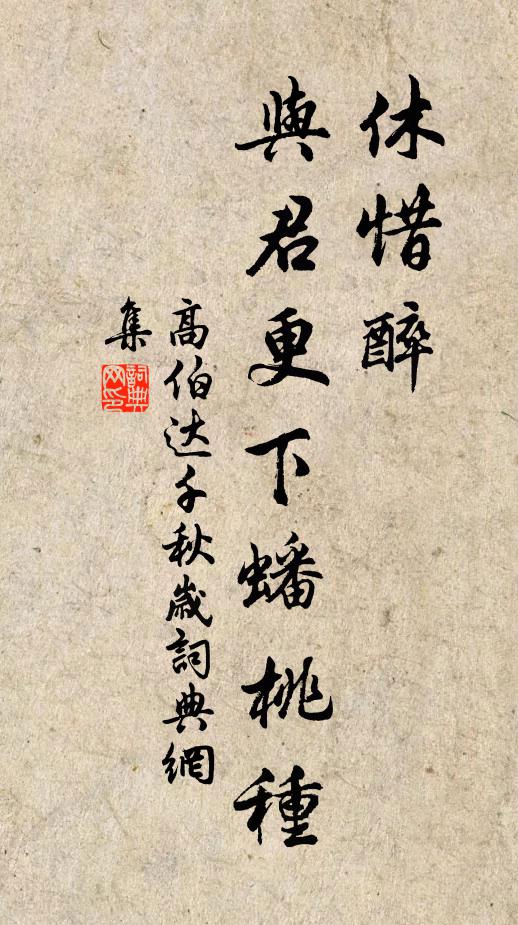 休惜醉
與君更下蟠桃種
高伯达千秋歲詞典網
集
詞典
网印